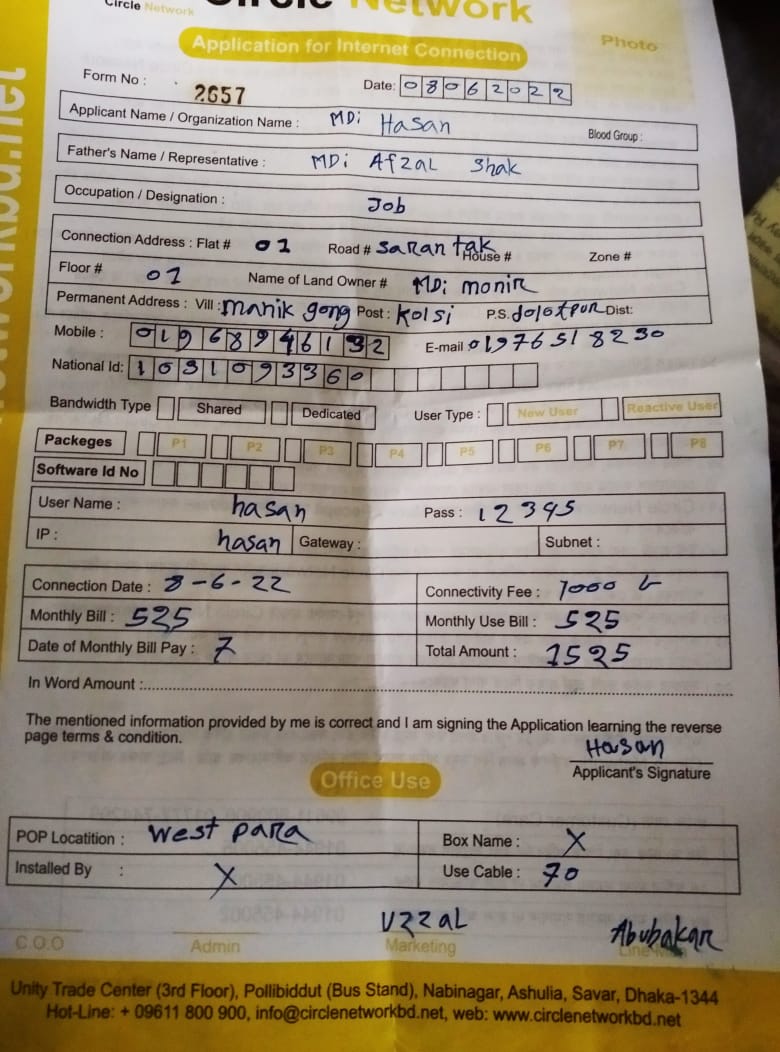 Circle Network
Circle Network
Application for Internet Connection
Photo
Form No : 2657
Date: 08062022
Applicant Name / Organization Name : MD: Hasan Blood Group :
Father's Name / Representative : MD: Afzal Shak
Occupation / Designation : Job
Connection Address : Flat # 01 Road # saran tak House # Zone #
Floor # 01 Name of Land Owner # MD: monir
Permanent Address : Vill : manik gong Post : kolsi P.S. dolotpur Dist:
Mobile : E-mail 01976518230
National Id: 1031093360
Bandwidth Type Shared Dedicated User Type : New User Reactive User
Packeges P1 P2 P3 P4 P5 P6 P7 P8
Software Id No
User Name : hasan Pass : 12345
IP : hasan Gateway : Subnet :
Connection Date : 8-6-22 Connectivity Fee : 1000
Monthly Bill : 525 Monthly Use Bill : 525
Date of Monthly Bill Pay : 7 Total Amount : 1525
In Word Amount :
The mentioned information provided by me is correct and I am signing the Application learning the reverse
page terms & condition.
Hasan
Applicant's Signature
Office Use
POP Locatition : west para Box Name : X
Installed By : X Use Cable : 70
Uzzal Abubakar
C.O.O Admin Marketing
Unity Trade Center (3rd Floor), Pollibiddut (Bus Stand), Nabinagar, Ashulia, Savar, Dhaka-1344
Hot-Line: + 09611 800 900, info@circlenetworkbd.net, web: www.circlenetworkbd.net